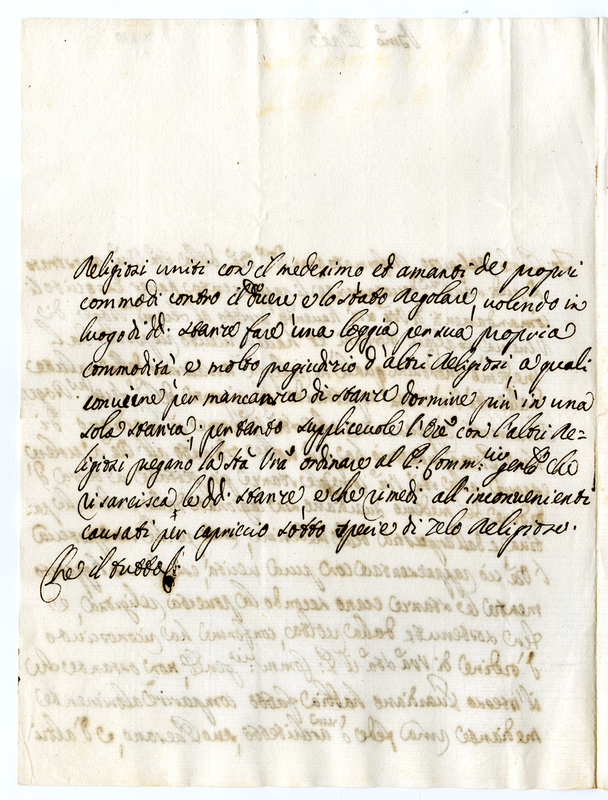 Religiosi uniti con il medesimo et amanti de propri
commodi contro il dovere e lo stato Regolare, volendo in
luogo di dd. stanze fare una loggia per sua propria
commodità e molto pregiudizio d'altri Religiosi, a quali
conviene per mancanza di stanze dormire più in una
sola stanza. pertanto supplicevole l'Ore con l'altri Re=
ligiosi pregano la Stà Vrà ordinare al P. Comm.rio genle che
risarcisca le dd. stanze e che rimedi all'inconvenienti
causati per capriccio sotto specie di zelo Religioso.
Che il tutto